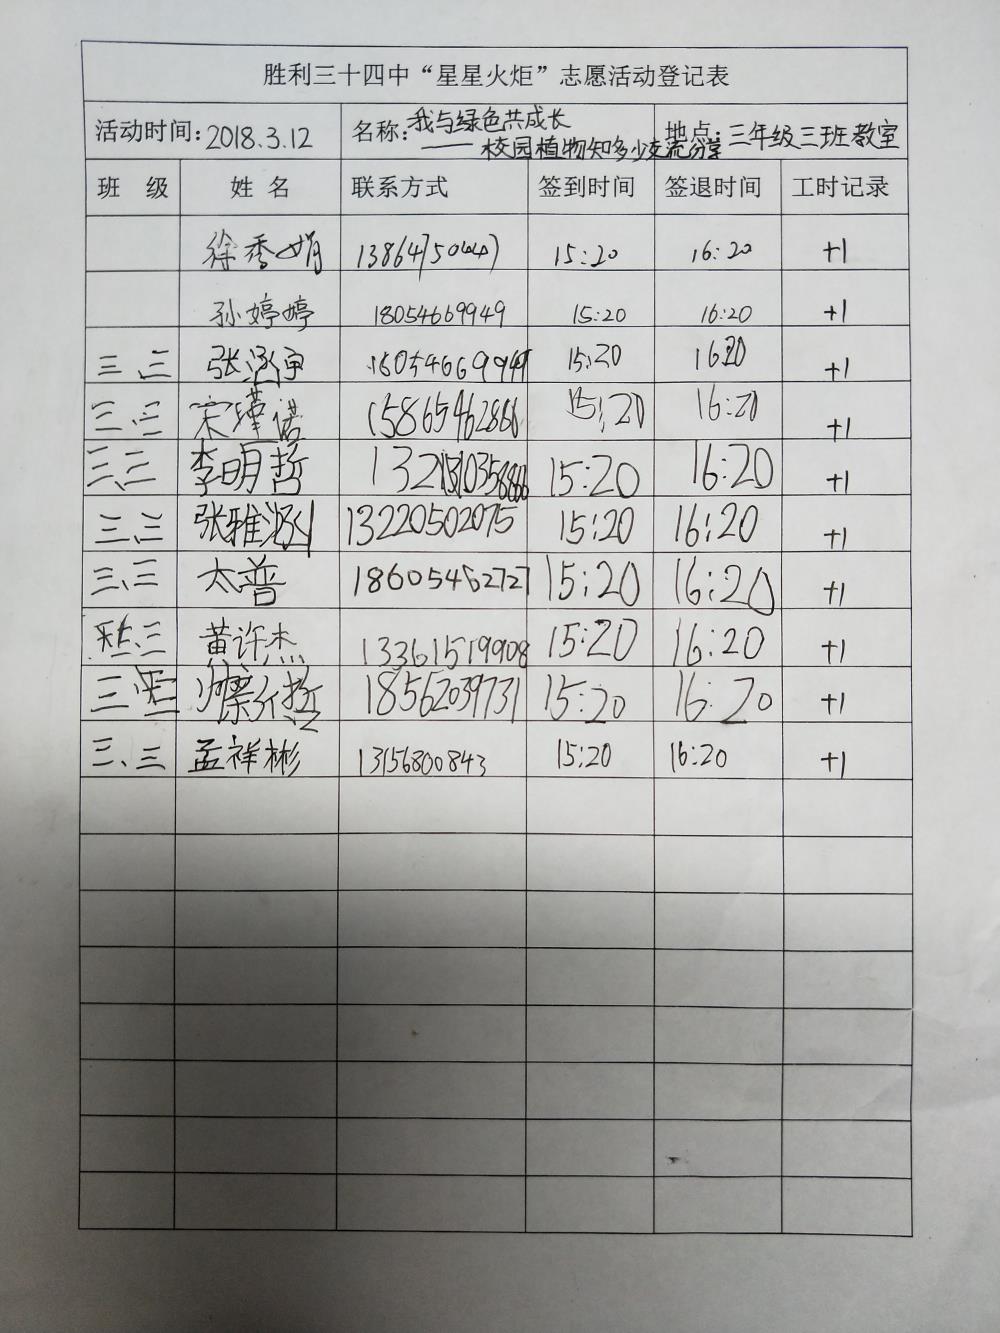 胜利三十四中“星星火炬”志愿活动登记表
活动时间：2018.3.12 名称：我与绿色共成长 ——校园植物知多少交流分享 地点：三年级三班教室
班 级 姓 名 联系方式 签到时间 签退时间 工时记录
徐秀娟 15:20 16:20 +1
孙婷婷 18054669949 15:20 16:20 +1
三.三 张 15:20 1620 +1
三.三 宋瑾诺 15865462866 15:20 16:20 +1
三.三 李明哲 15:20 16:20 +1
三.三 张雅涵 13220502075 15:20 16:20 +1
三.三 太普 18605462727 15:20 16:20 +1
三 黄许杰 13361519908 15:20 16:20 +1
三. 18562039731 15:20 16:20 +1
三.三 孟祥彬 13156800843 15:20 16:20 +1